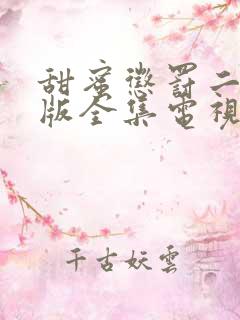 甜蜜懲罰二
版全集電視
千古妖雲